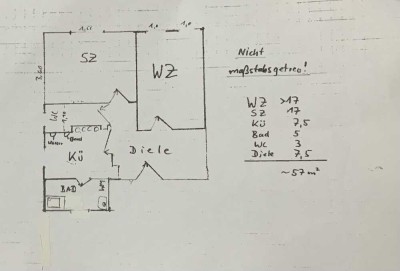 1,25
1,0
1,0
SZ
WZ
3,60
WC
1,70
KÜ
Diele
BAD
Nicht
maßstabsgetreu!
WZ >17
SZ 17
Kü 7,5
Bad 5
WC 3
Diele 7,5
~57 m²